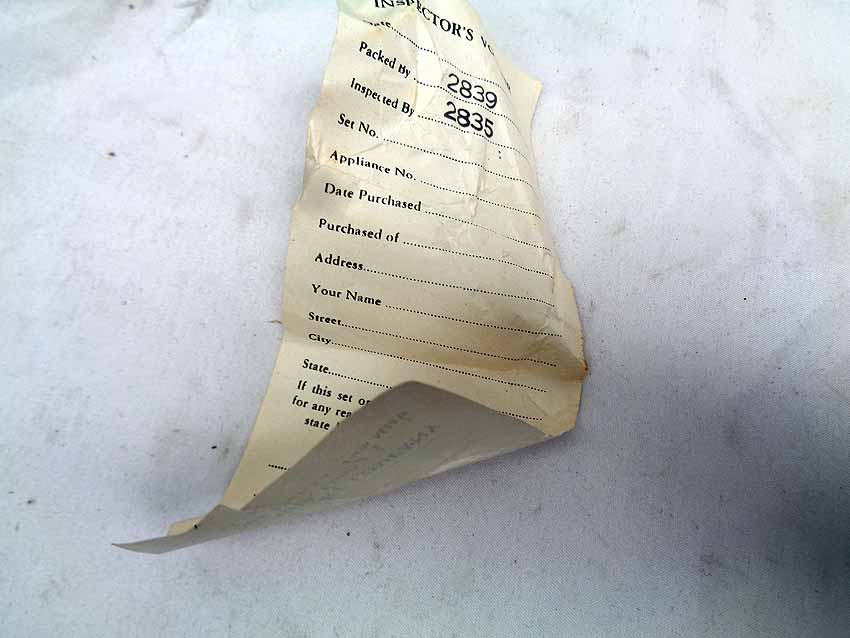 INSPECTOR'S
Packed By 2839
Inspected By 2835
Set No.
Appliance No.
Date Purchased
Purchased of
Address
Your Name
Street
City
State
If this set or
for any
state